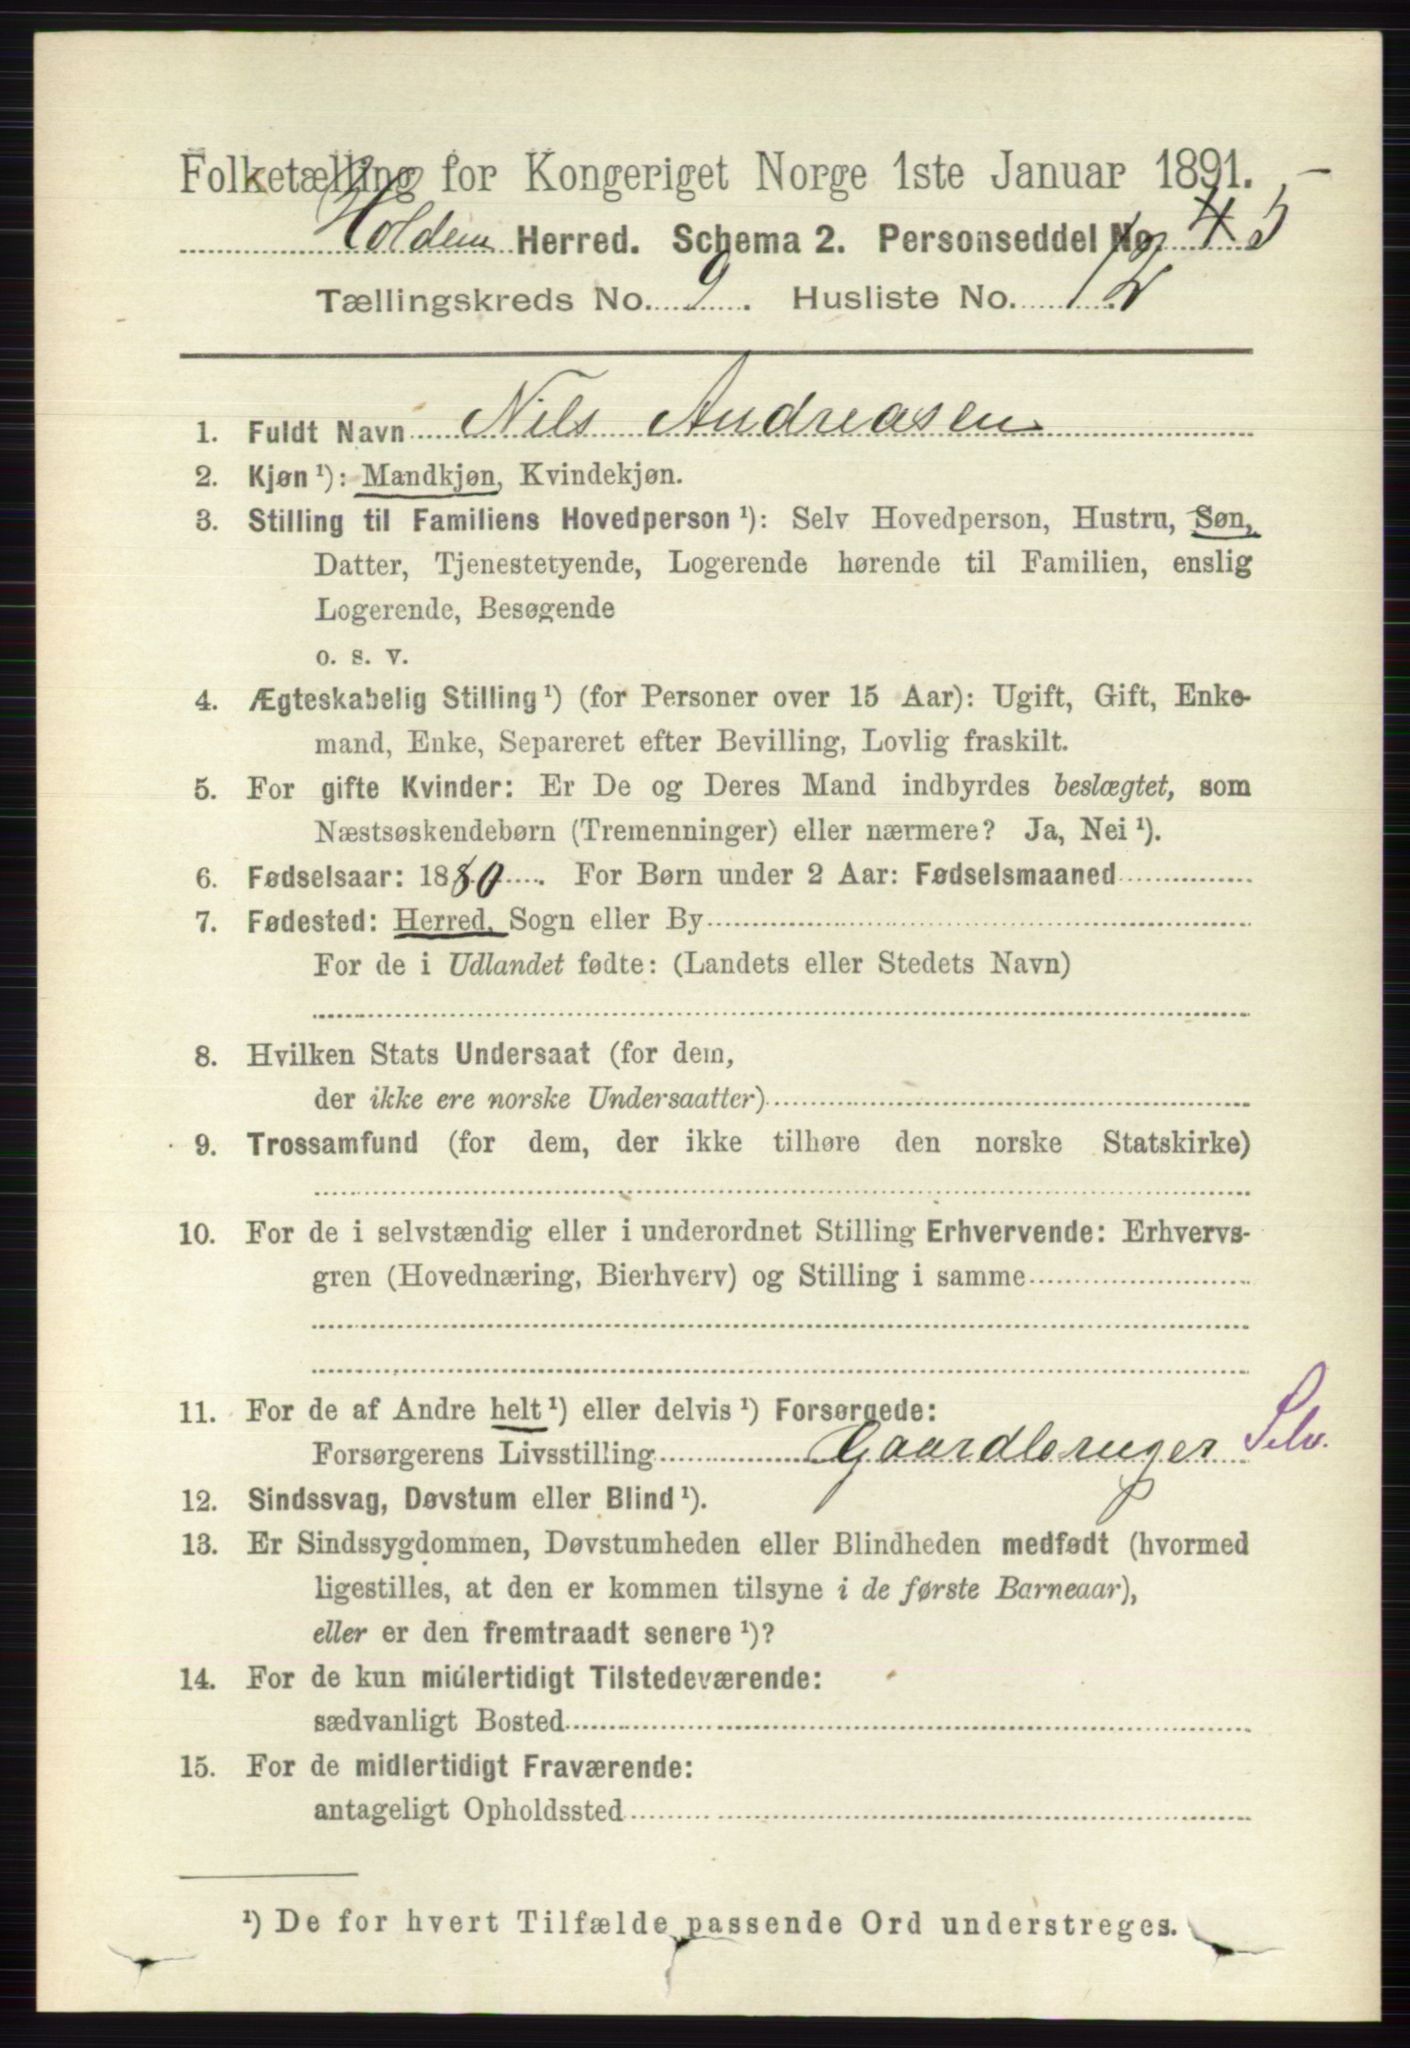 Folketælling for Kongeriget Norge 1ste Januar 1891.
Holden Herred. Schema 2. Personseddel No. 4 5
Tællingskreds No. 9. Husliste No. 12
1. Fuldt Navn Nils Andreasen
2. Kjøn ¹): Mandkjøn, Kvindekjøn.
3. Stilling til Familiens Hovedperson ¹): Selv Hovedperson, Hustru, Søn,
Datter, Tjenestetyende, Logerende hørende til Familien, enslig
Logerende, Besøgende
o. s. v.
4. Ægteskabelig Stilling ¹) (for Personer over 15 Aar): Ugift, Gift, Enke-
mand, Enke, Separeret efter Bevilling, Lovlig fraskilt.
5. For gifte Kvinder: Er De og Deres Mand indbyrdes beslægtet, som
Næstsøskendebørn (Tremenninger) eller nærmere? Ja, Nei ¹).
6. Fødselsaar: 1880. For Børn under 2 Aar: Fødselsmaaned
7. Fødested: Herred, Sogn eller By
For de i Udlandet fødte: (Landets eller Stedets Navn)
8. Hvilken Stats Undersaat (for dem,
der ikke ere norske Undersaatter)
9. Trossamfund (for dem, der ikke tilhøre den norske Statskirke)
10. For de i selvstændig eller i underordnet Stilling Erhvervende: Erhvervs-
gren (Hovednæring, Bierhverv) og Stilling i samme
11. For de af Andre helt ¹) eller delvis ¹) Forsørgede:
Forsørgerens Livsstilling Gaardbruger Selv.
12. Sindssvag, Døvstum eller Blind ¹).
13. Er Sindssygdommen, Døvstumheden eller Blindheden medfødt (hvormed
ligestilles, at den er kommen tilsyne i de første Barneaar),
eller er den fremtraadt senere ¹)?
14. For de kun midlertidigt Tilstedeværende:
sædvanligt Bosted
15. For de midlertidigt Fraværende:
antageligt Opholdssted
¹) De for hvert Tilfælde passende Ord understreges.